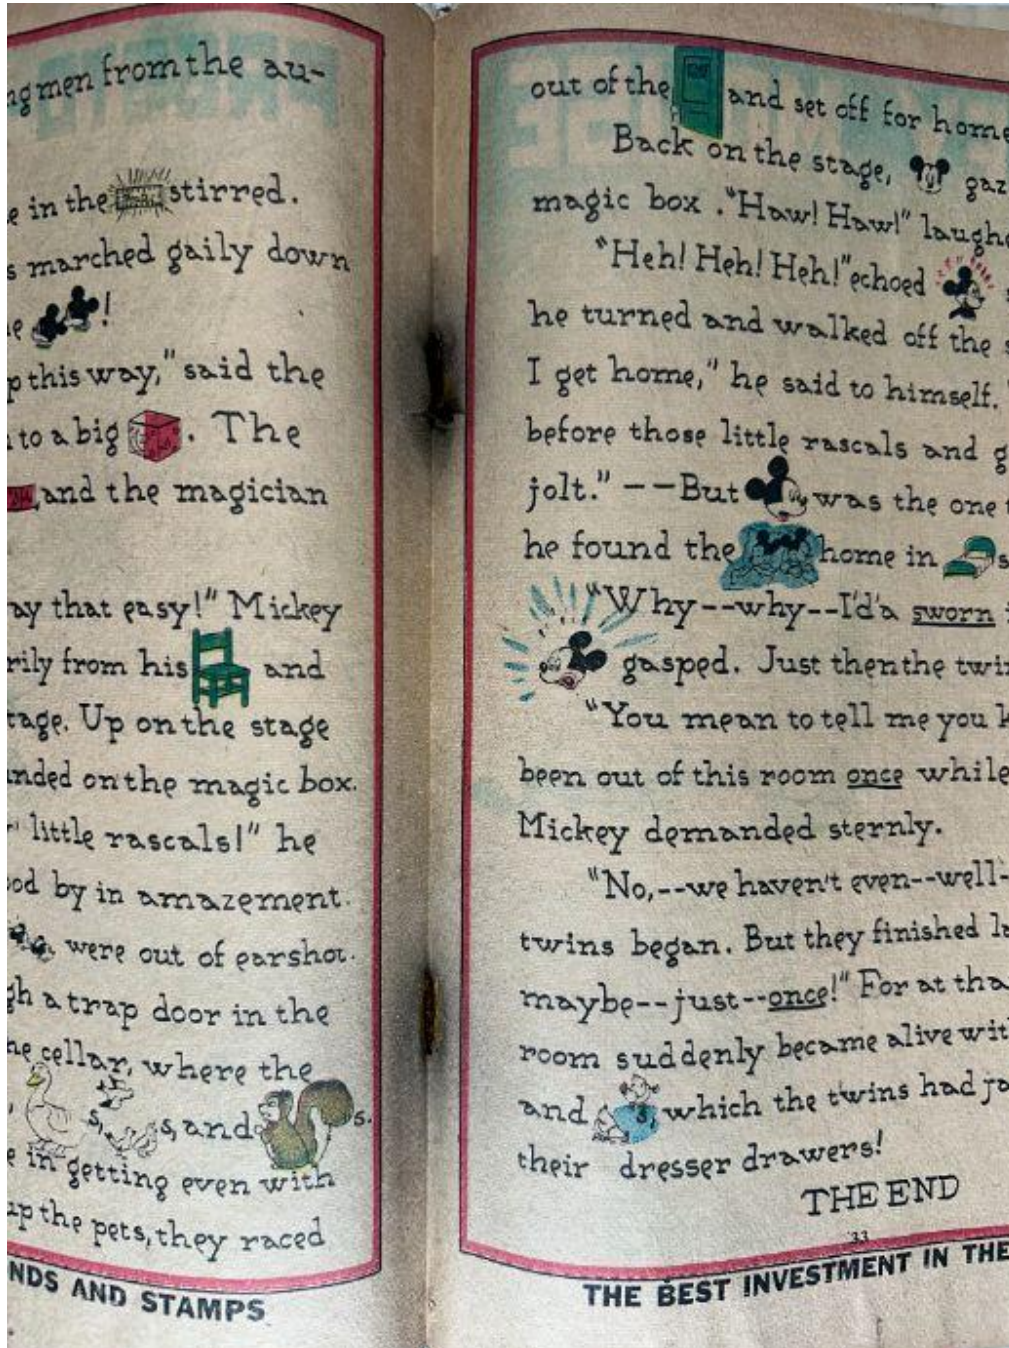 ng men from the au-
e in the stirred.
s marched gaily down
e !
p this way," said the
to a big . The
and the magician
ay that easy!" Mickey
rily from his and
tage. Up on the stage
nded on the magic box.
little rascals!" he
od by in amazement.
were out of earshot.
gh a trap door in the
he cellar, where the
s, s, and s.
e in getting even with
up the pets, they raced
NDS AND STAMPS
out of the and set off for home
Back on the stage, gaz
magic box. "Haw! Haw!" laughe
"Heh! Heh! Heh!" echoed
he turned and walked off the s
I get home," he said to himself. "
before those little rascals and g
jolt." -- But was the one t
he found the home in s
"Why--why--I'd'a sworn
gasped. Just then the twi
"You mean to tell me you k
been out of this room once while
Mickey demanded sternly.
"No,--we haven't even--well-
twins began. But they finished la
maybe--just--once!" For at tha
room suddenly became alive wit
and s, which the twins had ja
their dresser drawers!
THE END
33
THE BEST INVESTMENT IN THE